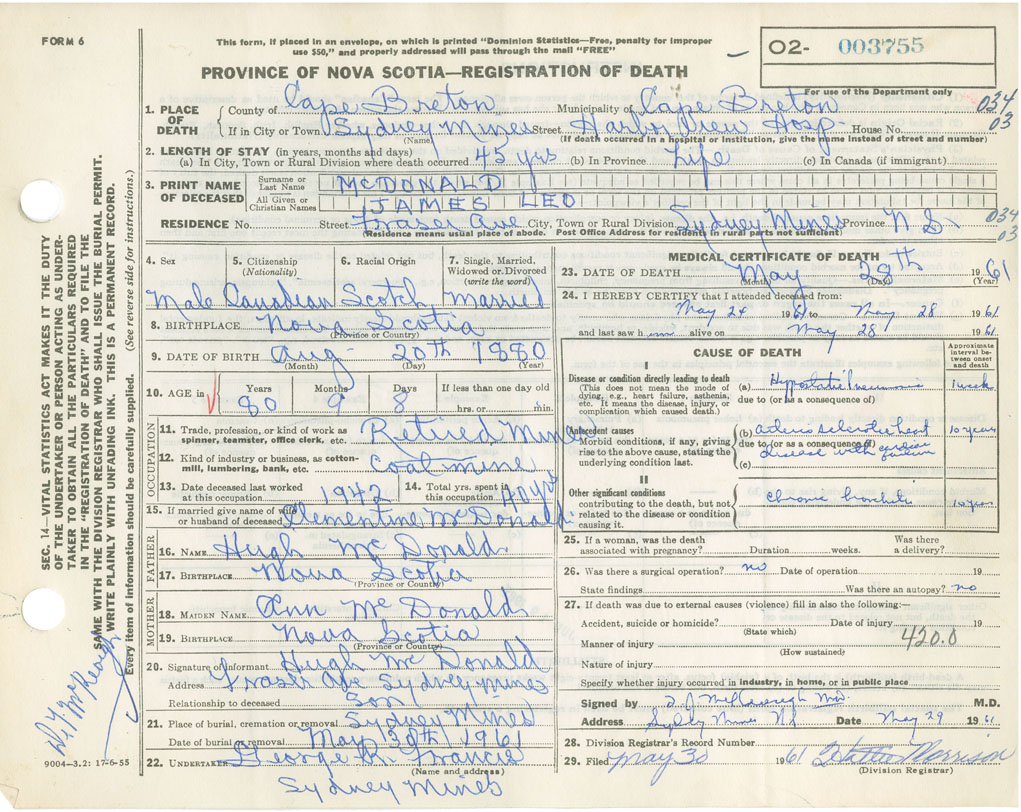 FORM 6
This form, if placed in an envelope, on which is printed "Dominion Statistics—Free, penalty for improper
use $50," and properly addressed will pass through the mail "FREE"
PROVINCE OF NOVA SCOTIA—REGISTRATION OF DEATH
O2- 003755
For use of the Department only
034
03
1. PLACE OF DEATH County of Cape Breton Municipality of Cape Breton
If in City or Town Sydney Mines Street Harbor View Hosp. House No.
(Name) (If death occurred in a hospital or institution, give the name instead of street and number)
2. LENGTH OF STAY (in years, months and days)
(a) In City, Town or Rural Division where death occurred 45 yrs (b) In Province Life (c) In Canada (if immigrant)
3. PRINT NAME OF DECEASED Surname or Last Name MCDONALD
All Given or Christian Names JAMES LEO
RESIDENCE No. Street Fraser Ave City, Town or Rural Division Sydney Mines Province N S.
034
03
(Residence means usual place of abode. Post Office Address for residents in rural parts not sufficient)
4. Sex 5. Citizenship (Nationality) 6. Racial Origin 7. Single, Married, Widowed or Divorced (write the word)
Male Canadian Scotch Married
8. BIRTHPLACE Nova Scotia
(Province or Country)
9. DATE OF BIRTH Aug 20th 1880
(Month) (Day) (Year)
10. AGE in Years Months Days If less than one day old
80 9 8 hrs. or min.
OCCUPATION
11. Trade, profession, or kind of work as spinner, teamster, office clerk, etc. Retired Miner
12. Kind of industry or business, as cotton-mill, lumbering, bank, etc. Coal mine
13. Date deceased last worked at this occupation 1942 14. Total yrs. spent in this occupation 40 yrs
15. If married give name of wife or husband of deceased Clementine McDonald
FATHER
16. NAME Hugh McDonald
17. BIRTHPLACE Nova Scotia
(Province or Country)
MOTHER
18. MAIDEN NAME Ann McDonald
19. BIRTHPLACE Nova Scotia
(Province or Country)
20. Signature of informant Hugh McDonald
Address Fraser Ave Sydney Mines
Relationship to deceased Son
21. Place of burial, cremation or removal Sydney Mines
Date of burial or removal May 30th 1961
22. UNDERTAKER George M Francis
(Name and address)
Sydney Mines
MEDICAL CERTIFICATE OF DEATH
23. DATE OF DEATH May 28th 1961
(Month) (Day) (Year)
24. I HEREBY CERTIFY that I attended deceased from:
May 24 1961 to May 28 1961
and last saw him alive on May 28 1961
CAUSE OF DEATH
Approximate interval between onset and death
I
Disease or condition directly leading to death
(This does not mean the mode of dying, e.g., heart failure, asthenia, etc. It means the disease, injury, or complication which caused death.)
(a) Hypostatic Pneumonia 1 week
due to (or as a consequence of)
Antecedent causes
Morbid conditions, if any, giving rise to the above cause, stating the underlying condition last.
(b) arterio sclerotic heart 10 years
due to (or as a consequence of)
disease with cardiac failure
(c)
II
Other significant conditions
contributing to the death, but not related to the disease or condition causing it.
Chronic bronchitis 10 years
25. If a woman, was the death associated with pregnancy? Duration weeks. Was there a delivery?
26. Was there a surgical operation? no Date of operation 19
State findings Was there an autopsy? no
27. If death was due to external causes (violence) fill in also the following:—
Accident, suicide or homicide? Date of injury 19
(State which)
420.0
Manner of injury
(How sustained)
Nature of injury
Specify whether injury occurred in industry, in home, or in public place
Signed by M.D.
Address Sydney Mines NS Date May 29 1961
28. Division Registrar's Record Number
29. Filed May 30 1961 Hattie Morrison
(Division Registrar)
SEC. 14—VITAL STATISTICS ACT MAKES IT THE DUTY
OF THE UNDERTAKER OR PERSON ACTING AS UNDER-
TAKER TO OBTAIN ALL THE PARTICULARS REQUIRED
IN THE "REGISTRATION OF DEATH" AND TO FILE THE
SAME WITH THE DIVISION REGISTRAR WHO SHALL ISSUE THE BURIAL PERMIT.
WRITE PLAINLY WITH UNFADING INK. THIS IS A PERMANENT RECORD.
Every item of information should be carefully supplied. (See reverse side for instructions.)
9004—3.2: 17-6-55